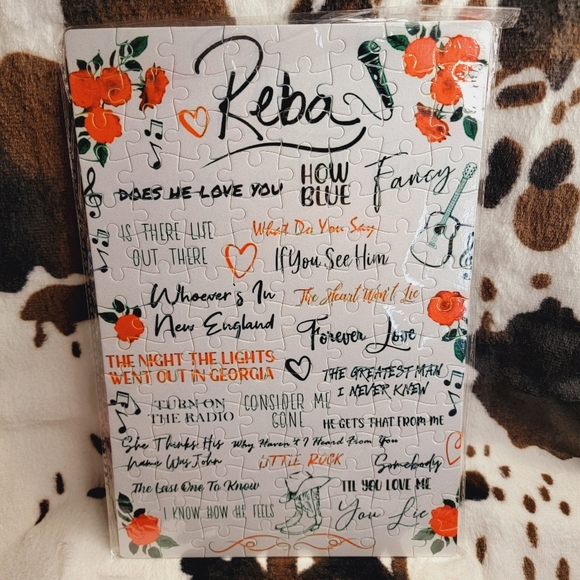 Reba
DOES HE LOVE YOU
HOW
BLUE
Fancy
IS THERE LIFE
OUT THERE
What Do You Say
If You See Him
Whoever's In
New England
The Heart Won't Lie
Forever Love
THE NIGHT THE LIGHTS
WENT OUT IN GEORGIA
THE GREATEST MAN
I NEVER KNEW
TURN ON
THE RADIO
CONSIDER ME
GONE
HE GETS THAT FROM ME
She Thinks His
Name Was John
Why Haven't I Heard From You
LITTLE ROCK
Somebody
The Last One To Know
TIL YOU LOVE ME
I KNOW HOW HE FEELS
You Lie